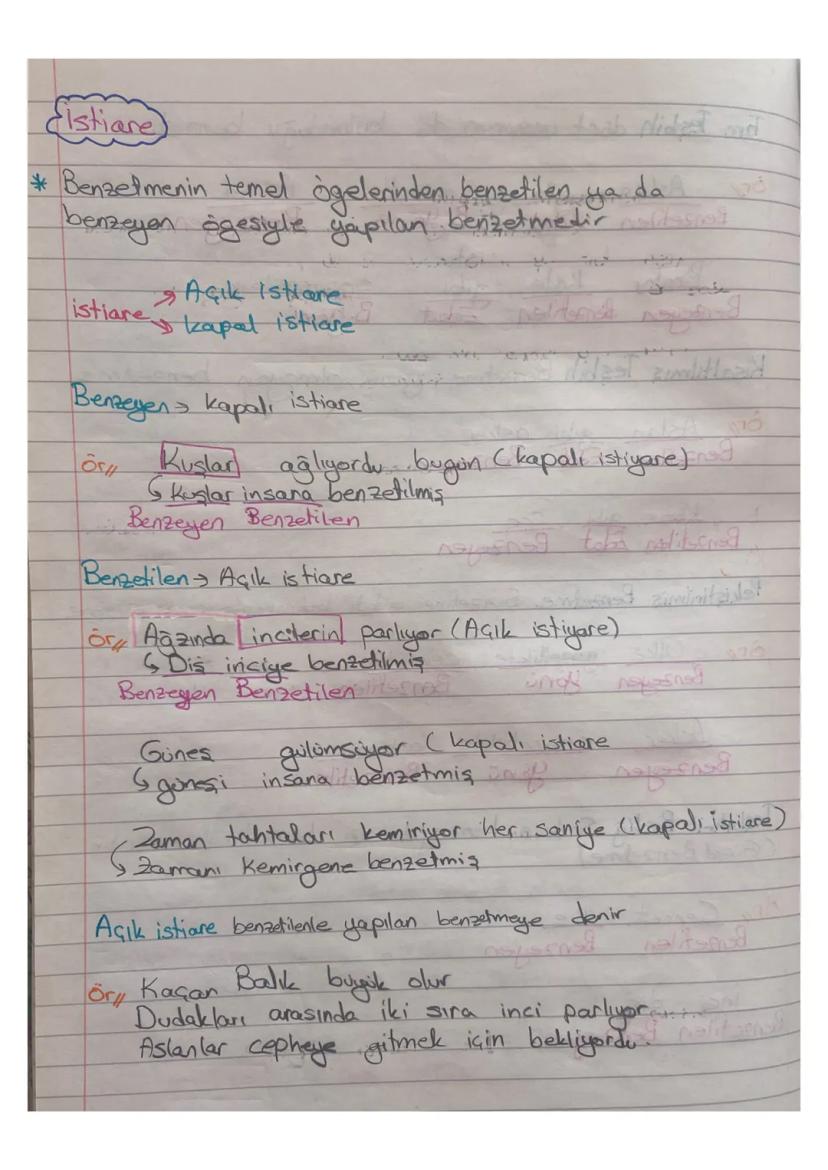 istiare
* Benzetmenin temel ögelerinden benzetilen ya da
benzeyen ögesiyle yapılan benzetmedir
istiare → Açık istiare
→ kapal istiare
Benzeyen → kapalı istiare
Ör// Kuşlar ağlıyordu bugün (kapalı istiyare)
↳ kuşlar insana benzetilmiş
Benzeyen Benzetilen
Benzetilen → Açık istiare
Ör// Ağzında incilerin parlıyor (Açık istiyare)
↳ Diş inciye benzetilmiş
Benzeyen Benzetilen
Güneş gülümsüyor (kapalı istiare
↳ güneşi insana benzetmiş
Zaman tahtaları kemiriyor her saniye (kapalı istiare)
↳ Zamanı kemirgene benzetmiş
Açık istiare benzetilenle yapılan benzetmeye denir
Ör// Kaçan Balık büyük olur
Dudakları arasında iki sıra inci parlıyor
Aslanlar cepheye gitmek için bekliyordu.